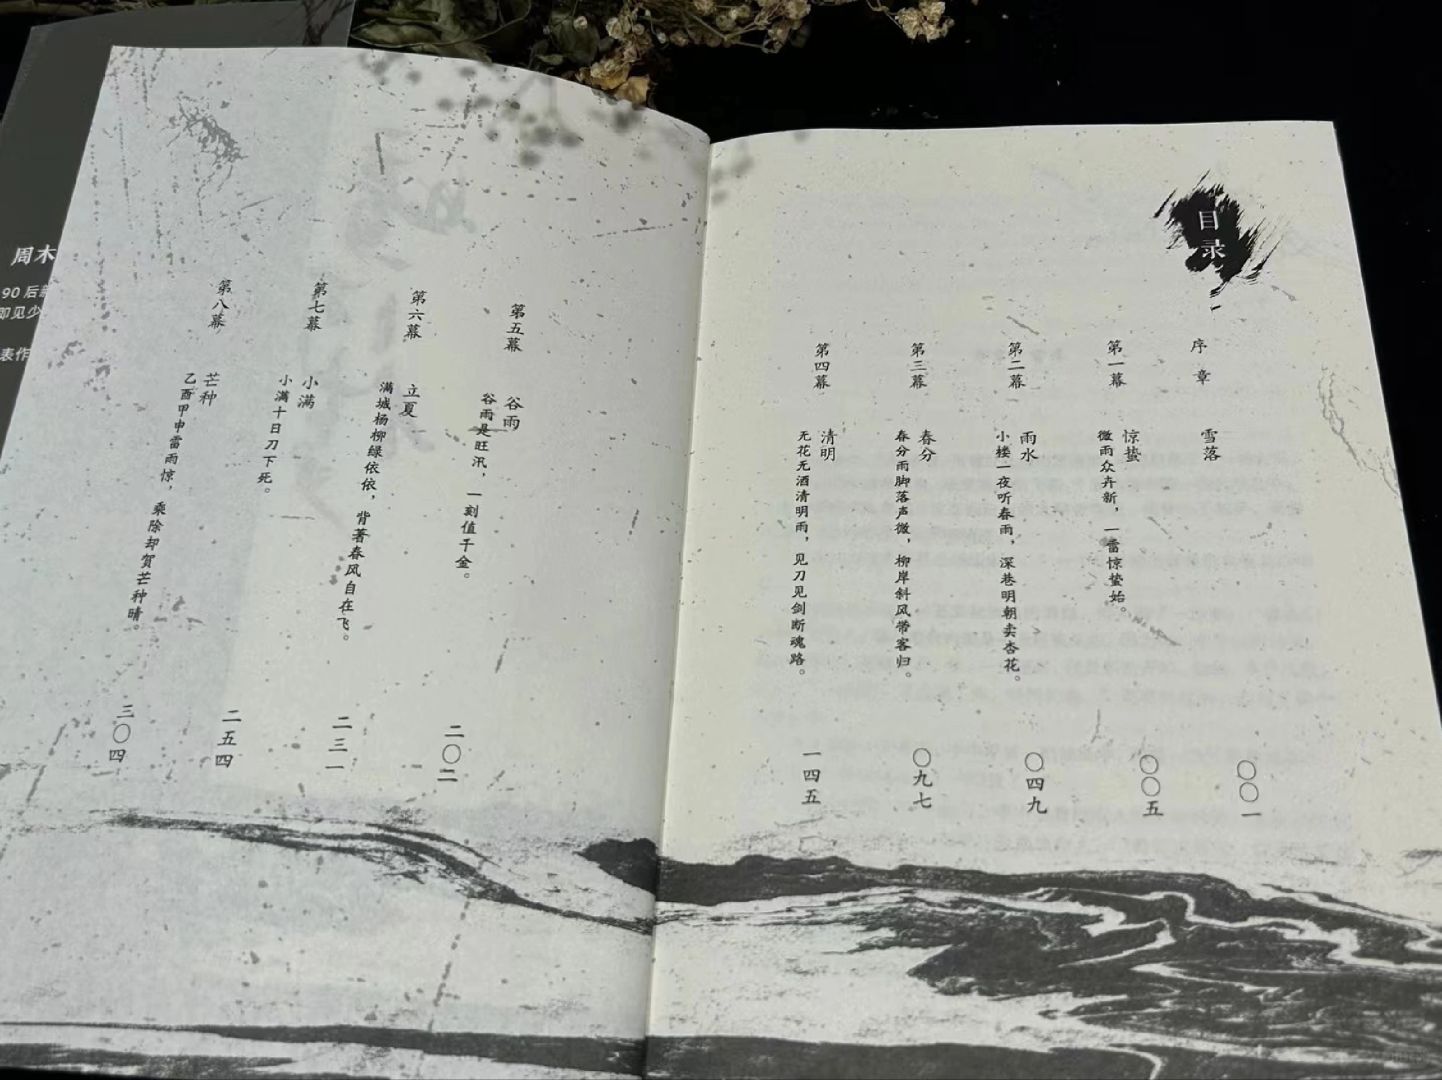 目录
序章
雪落
〇〇一
第一幕
惊蛰
微雨众卉新，一雷惊蛰始。
〇〇五
第二幕
雨水
小楼一夜听春雨，深巷明朝卖杏花。
〇四九
第三幕
春分
春分雨脚落声微，柳岸斜风带客归。
〇九七
第四幕
清明
无花无酒清明雨，见刀见剑断魂路。
一四五
第五幕
谷雨
谷雨是旺汛，一刻值千金。
二〇二
第六幕
立夏
满城杨柳绿依依，背著春风自在飞。
二三一
第七幕
小满
小满十日刀下死。
二五四
第八幕
芒种
乙酉甲申雷雨惊，乘除却贺芒种晴。
三〇四
周木
90后
即见少
表作